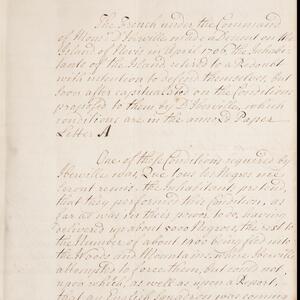 The French under the Command
of Mons.r D'Iberville made a Descent on the
Island of Nevis in April 1706 the Inhabi-
tants of the Island retired to a Redout
with intention to defend themselves, but
soon after capitulated on the Conditions
proposed to them by D'Iberville, which
conditions are in the annexed Paper
Letter A
One of these Conditions required by
Iberville was, Que tous les Negres me
seront remis, the Inhabitants pretend,
that they performed this Condition, as
far as was in their power to do, having
delivered up about 3000 Negroes, the rest to
the Number of about 1400 being fled into
the Woods and Mountains, where Iberville
attempted to force them, but could not,
upon which, as well as upon a Report,
that an English Squadron was coming